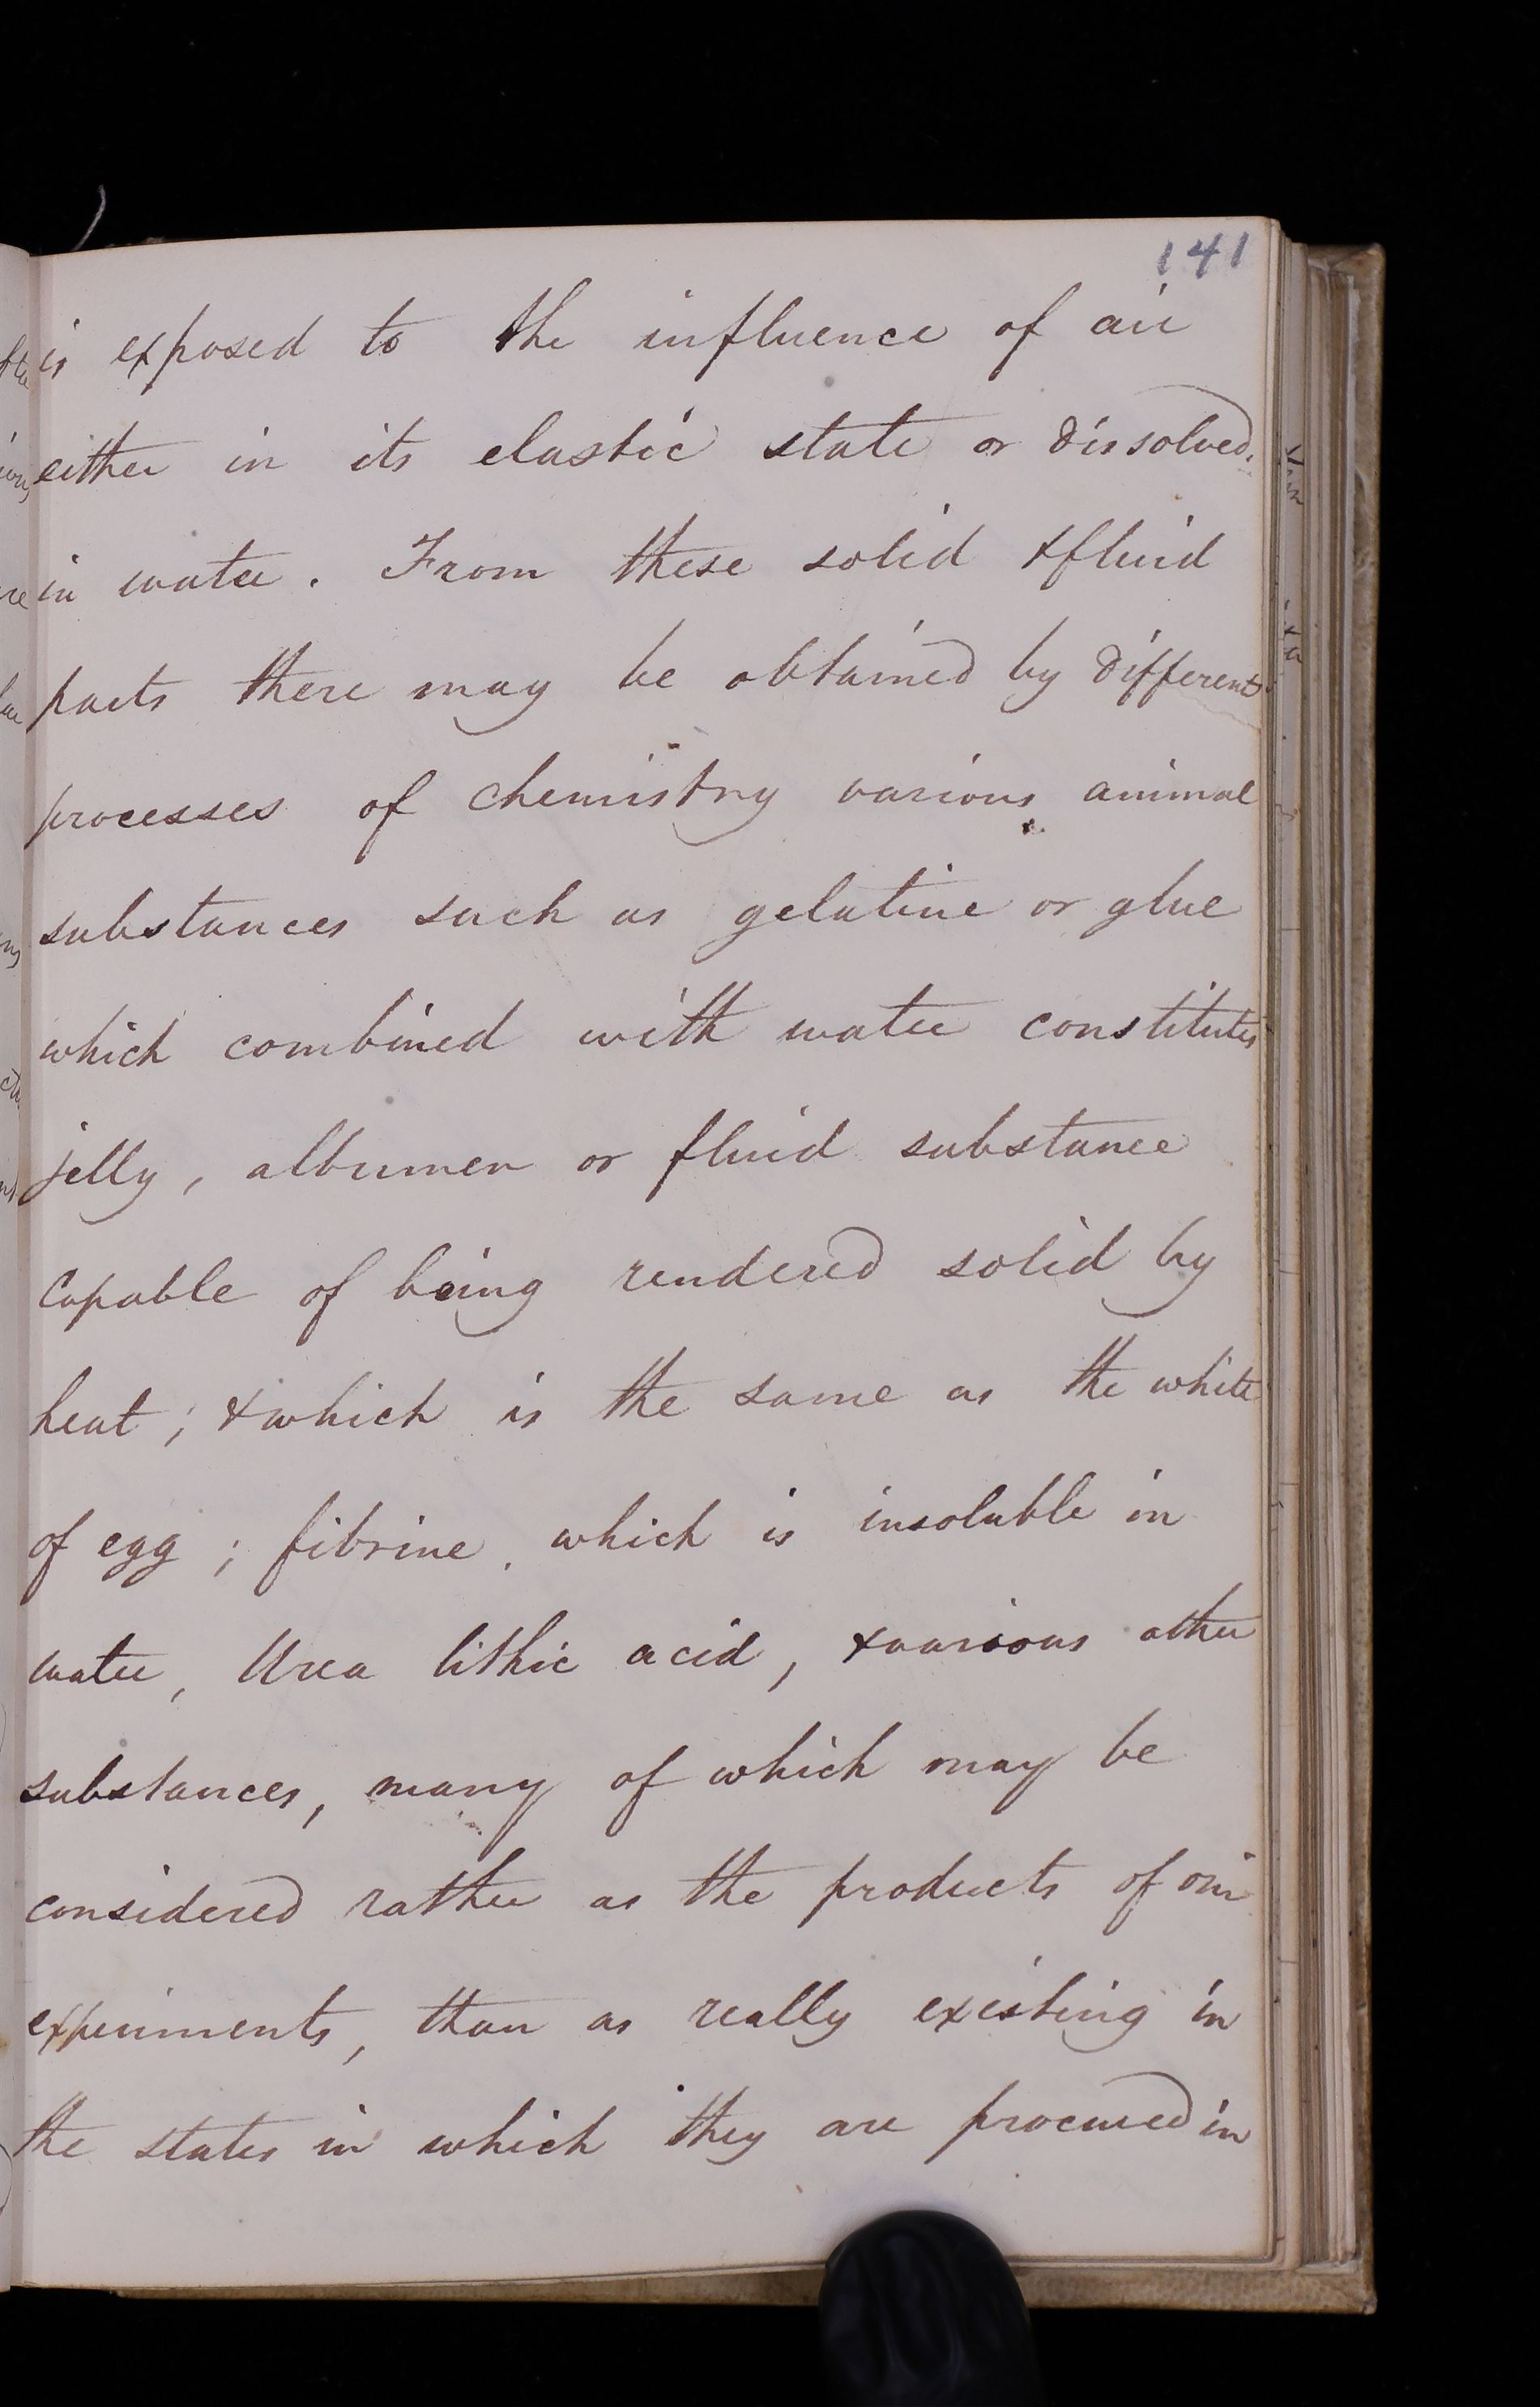 141
is exposed to the influence of air
either in its elastic state or dissolved.
in water. From these solid & fluid
parts there may be obtained by different
processes of chemistry various animal
substances such as gelatine or glue
which combined with water constitutes
jelly, albumen or fluid substance
capable of being rendered solid by
heat; & which is the same as the white
of egg; fibrine, which is insoluble in
water, Urea lithic acid, & various other
substances, many of which may be
considered rather as the products of our
experiments, than as really existing in
the states in which they are procured in